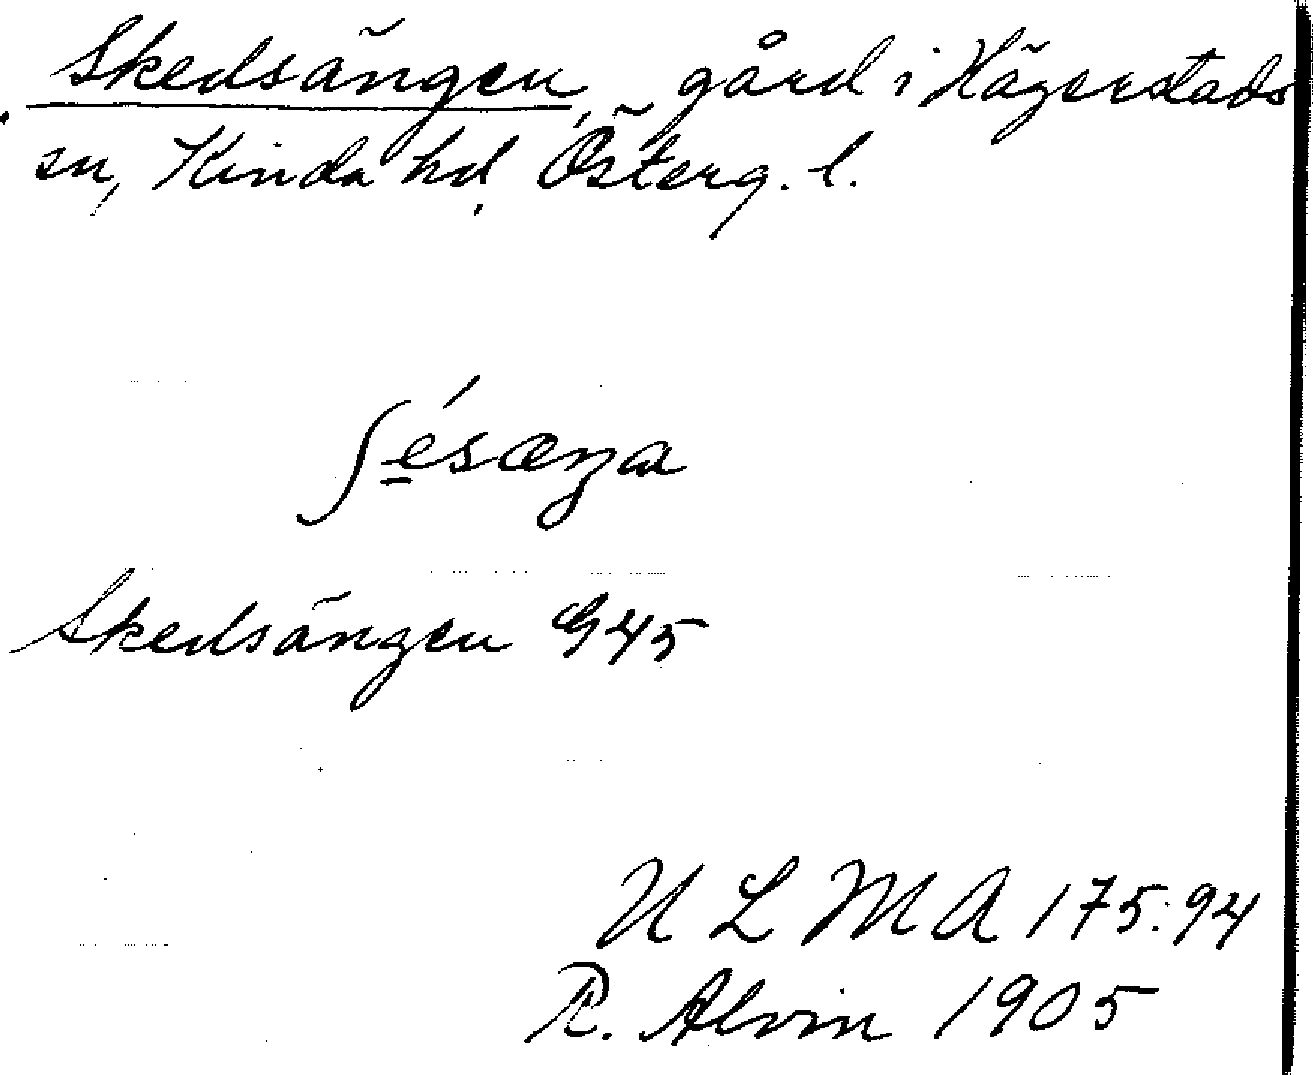 Skedsängen, gård i Hägerstads
sn, Kinda hd, Österg. l.
ʃe̠´sæŋa
Skedsängen G45
ULMA 175:94
R. Alvin 1905